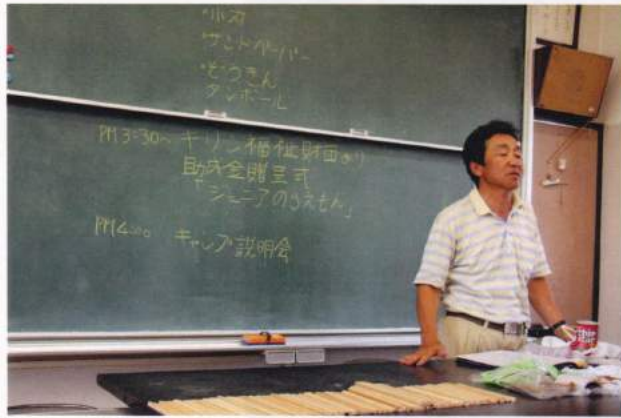 ・小刀
・サンドペーパー
・ぞうきん
ダンボール
PM3:30~ キリン福祉財団より
助成金贈呈式
「ジュニアのうえもん」
PM4:00 キャンプ説明会